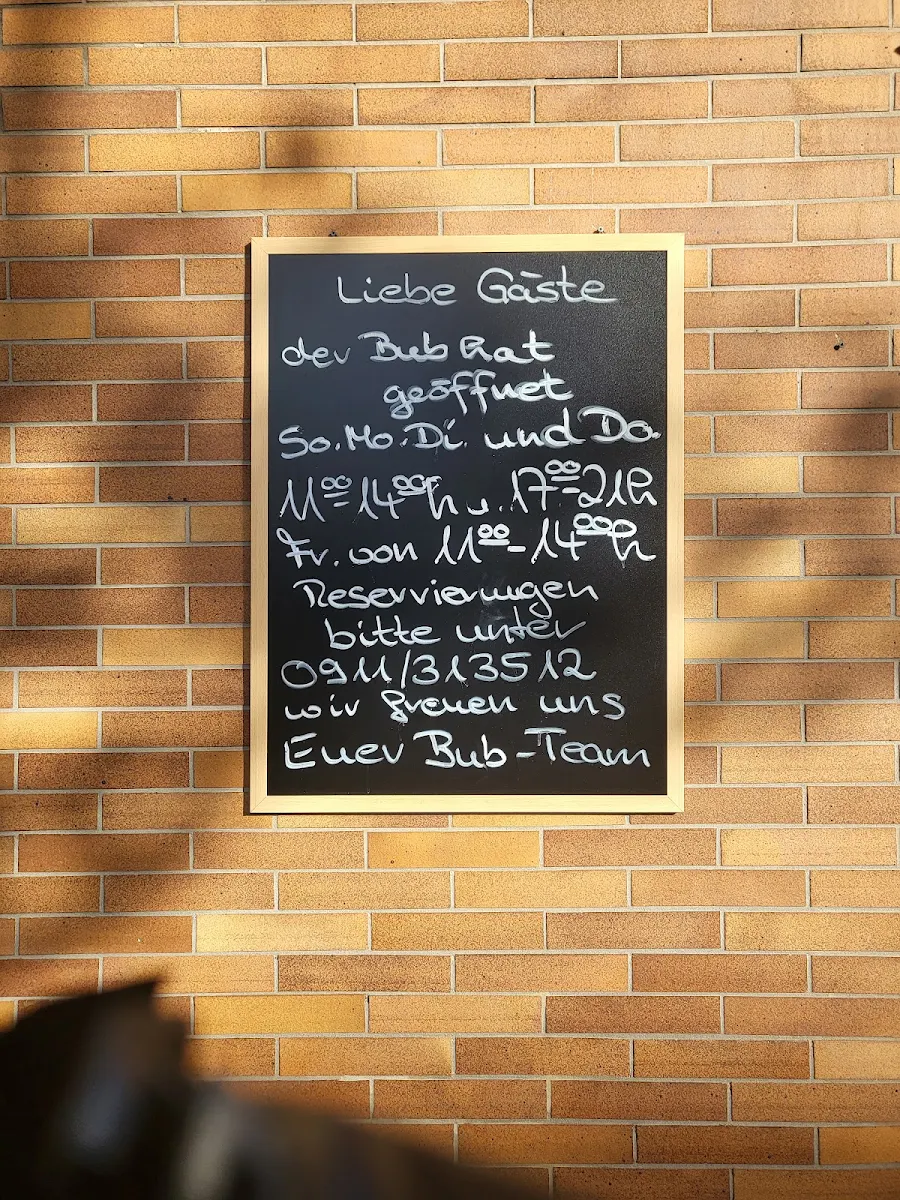 Liebe Gäste
der Bub hat
geöffnet
So. Mo. Di. und Do.
11⁰⁰-14⁰⁰h u. 17⁰⁰-21h
Fr. von 11⁰⁰-14⁰⁰h
Reservierungen
bitte unter
0911/313512
wir freuen uns
Euer Bub-Team